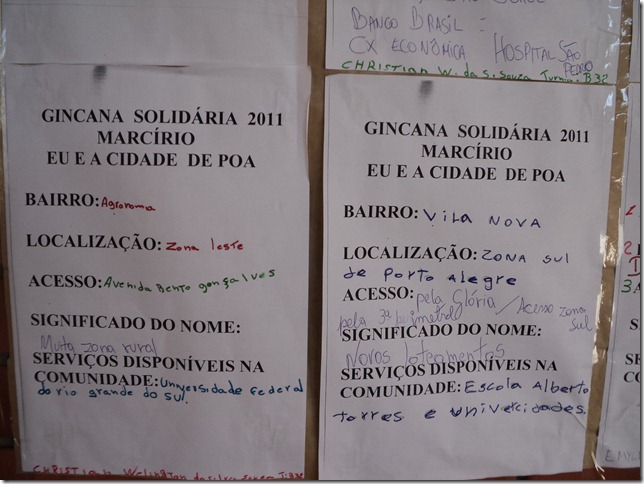 BANCO BRASIL =
CX ECONÔMICA HOSPITAL SÃO
PEDRO
CHRISTIAN W. da S. Souza Turma: B32
GINCANA SOLIDÁRIA 2011
MARCÍRIO
EU E A CIDADE DE POA
BAIRRO: Agronomia
LOCALIZAÇÃO: Zona leste
ACESSO: Avenida Bento gonçalves
SIGNIFICADO DO NOME:
Muita zona rural
SERVIÇOS DISPONÍVEIS NA
COMUNIDADE: Universidade Federal
do rio grande do sul.
CHRISTIAN Welington da silva
GINCANA SOLIDÁRIA 2011
MARCÍRIO
EU E A CIDADE DE POA
BAIRRO: VILA NOVA
LOCALIZAÇÃO: ZONA SUL
de PORTO ALEGRE
ACESSO: pela Glória / Acesso zona
pela 3ª perimetral sul
SIGNIFICADO DO NOME:
Novos loteamentos
SERVIÇOS DISPONÍVEIS NA
COMUNIDADE: Escola Alberto
torres e univercidades.